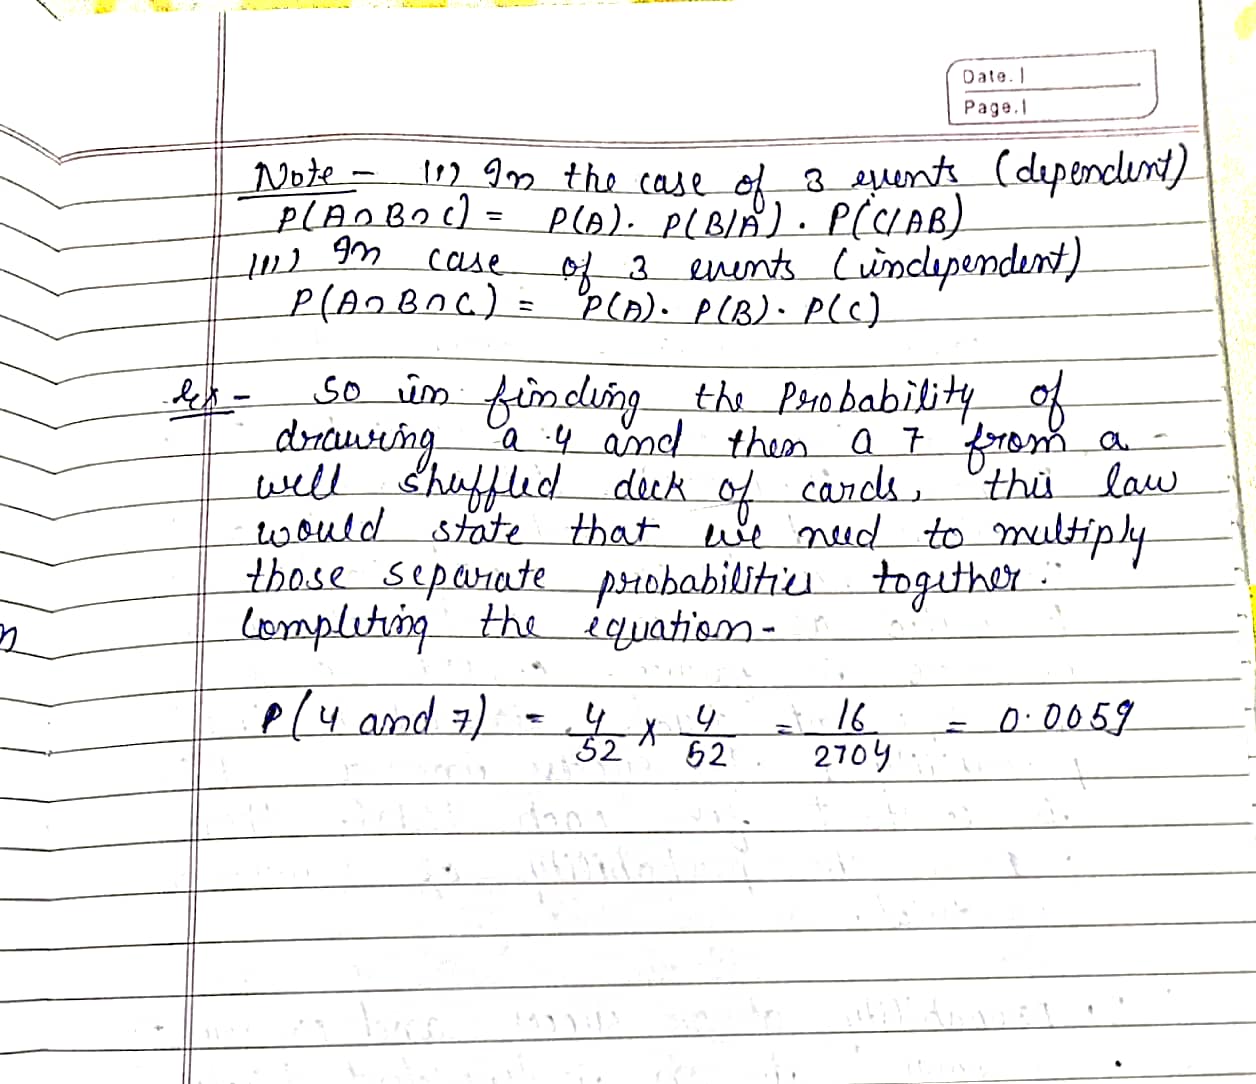 Date.
Page.
Note - (ii) In the case of 3 events (dependent)
P(A∩B∩C) = P(A). P(B/A). P(C/AB)
(iii) In case of 3 events (independent)
P(A∩B∩C) = P(A). P(B). P(C)
ex - So in finding the Probability of
drawing a 4 and then a 7 from a
well shuffled deck of cards, this law
would state that we need to multiply
those separate probabilities together.
Completing the equation-
P(4 and 7) = 4/52 x 4/52 = 16/2704 = 0.0059